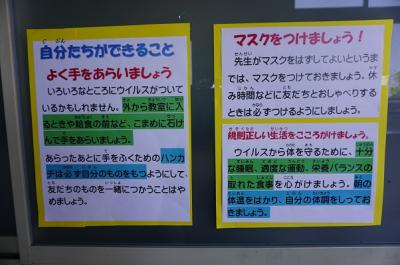 自分たちができること
よく手をあらいましょう
いろいろなところにウイルスがついて
いるかもしれません。外から教室に入
るときや給食の前など、こまめに石け
んで手をあらいましょう。
あらったあとに手をふくためのハンカ
チは必ず自分のものをもつようにして、
友だちのものを一緒につかうことはや
めましょう。
マスクをつけましょう!
先生がマスクをはずしてよいというま
では、マスクをつけておきましょう。休
み時間などに友だちとおしゃべりする
ときは必ずつけるようにしましょう。
規則正しい生活をこころがけましょう。
ウイルスから体を守るために、十分
な睡眠、適度な運動、栄養バランスの
取れた食事を心がけましょう。朝の
体温をはかり、自分の体調をしってお
きましょう。